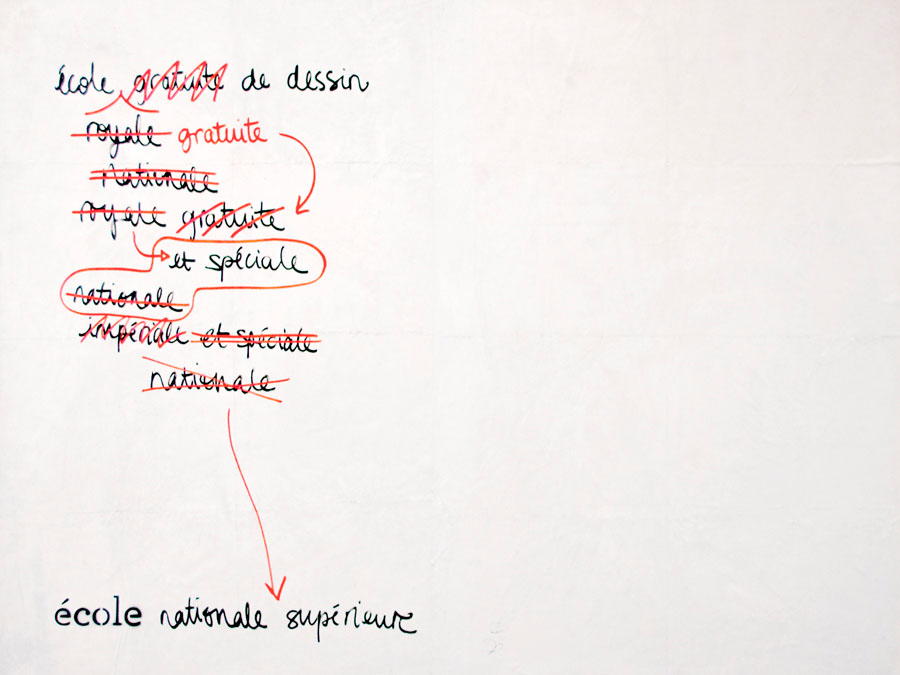 école gratuite de dessin
royale gratuite
nationale
royale gratuite
et spéciale
nationale
impériale et spéciale
nationale
école nationale supérieure